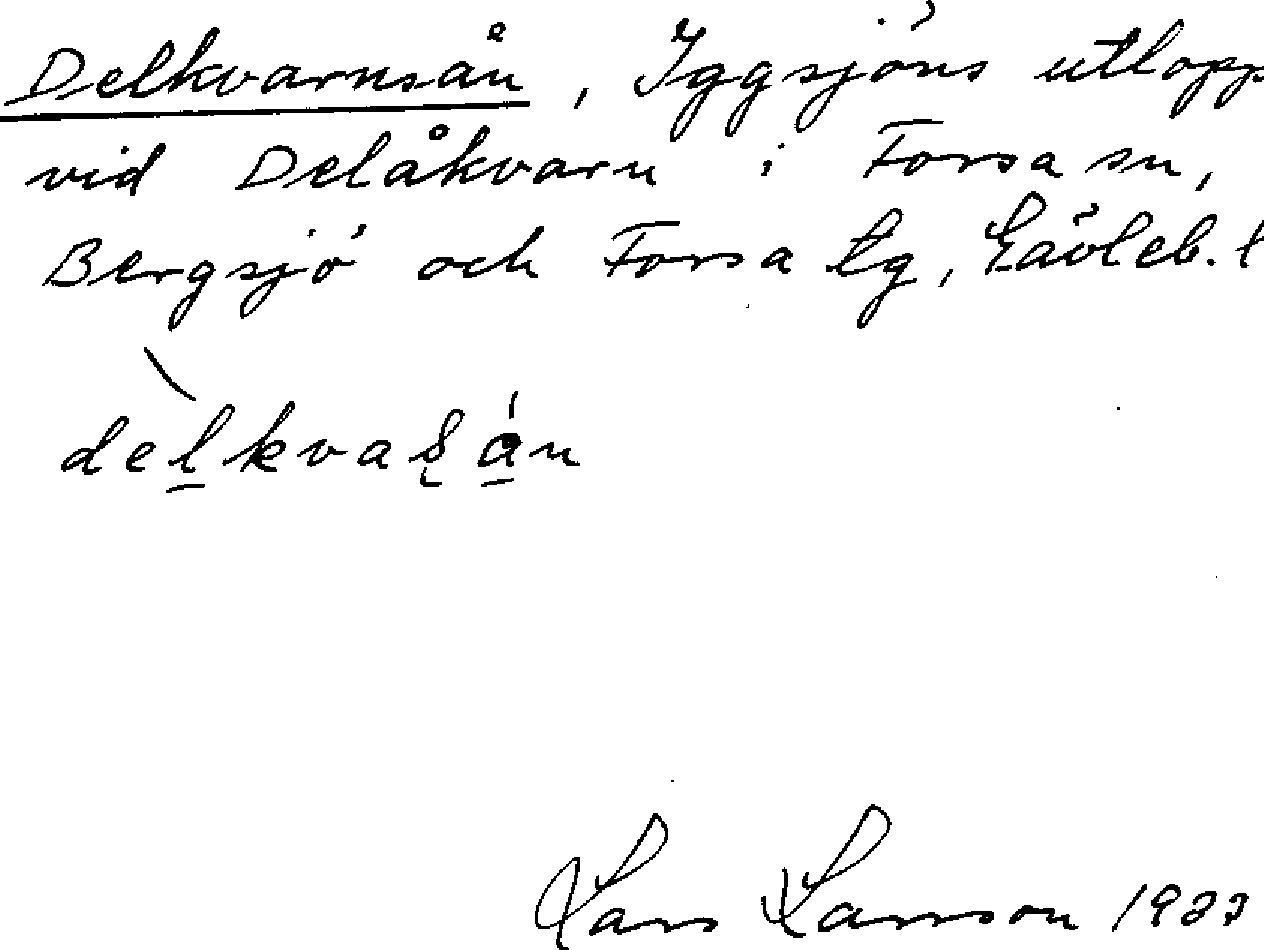 Delkvarnsån, Iggsjöns utlopp
vid Delåkvarn i Forsa sn,
Bergsjö och Forsa tg, Gävleb. l
delkvaʂån
Lars Larsson